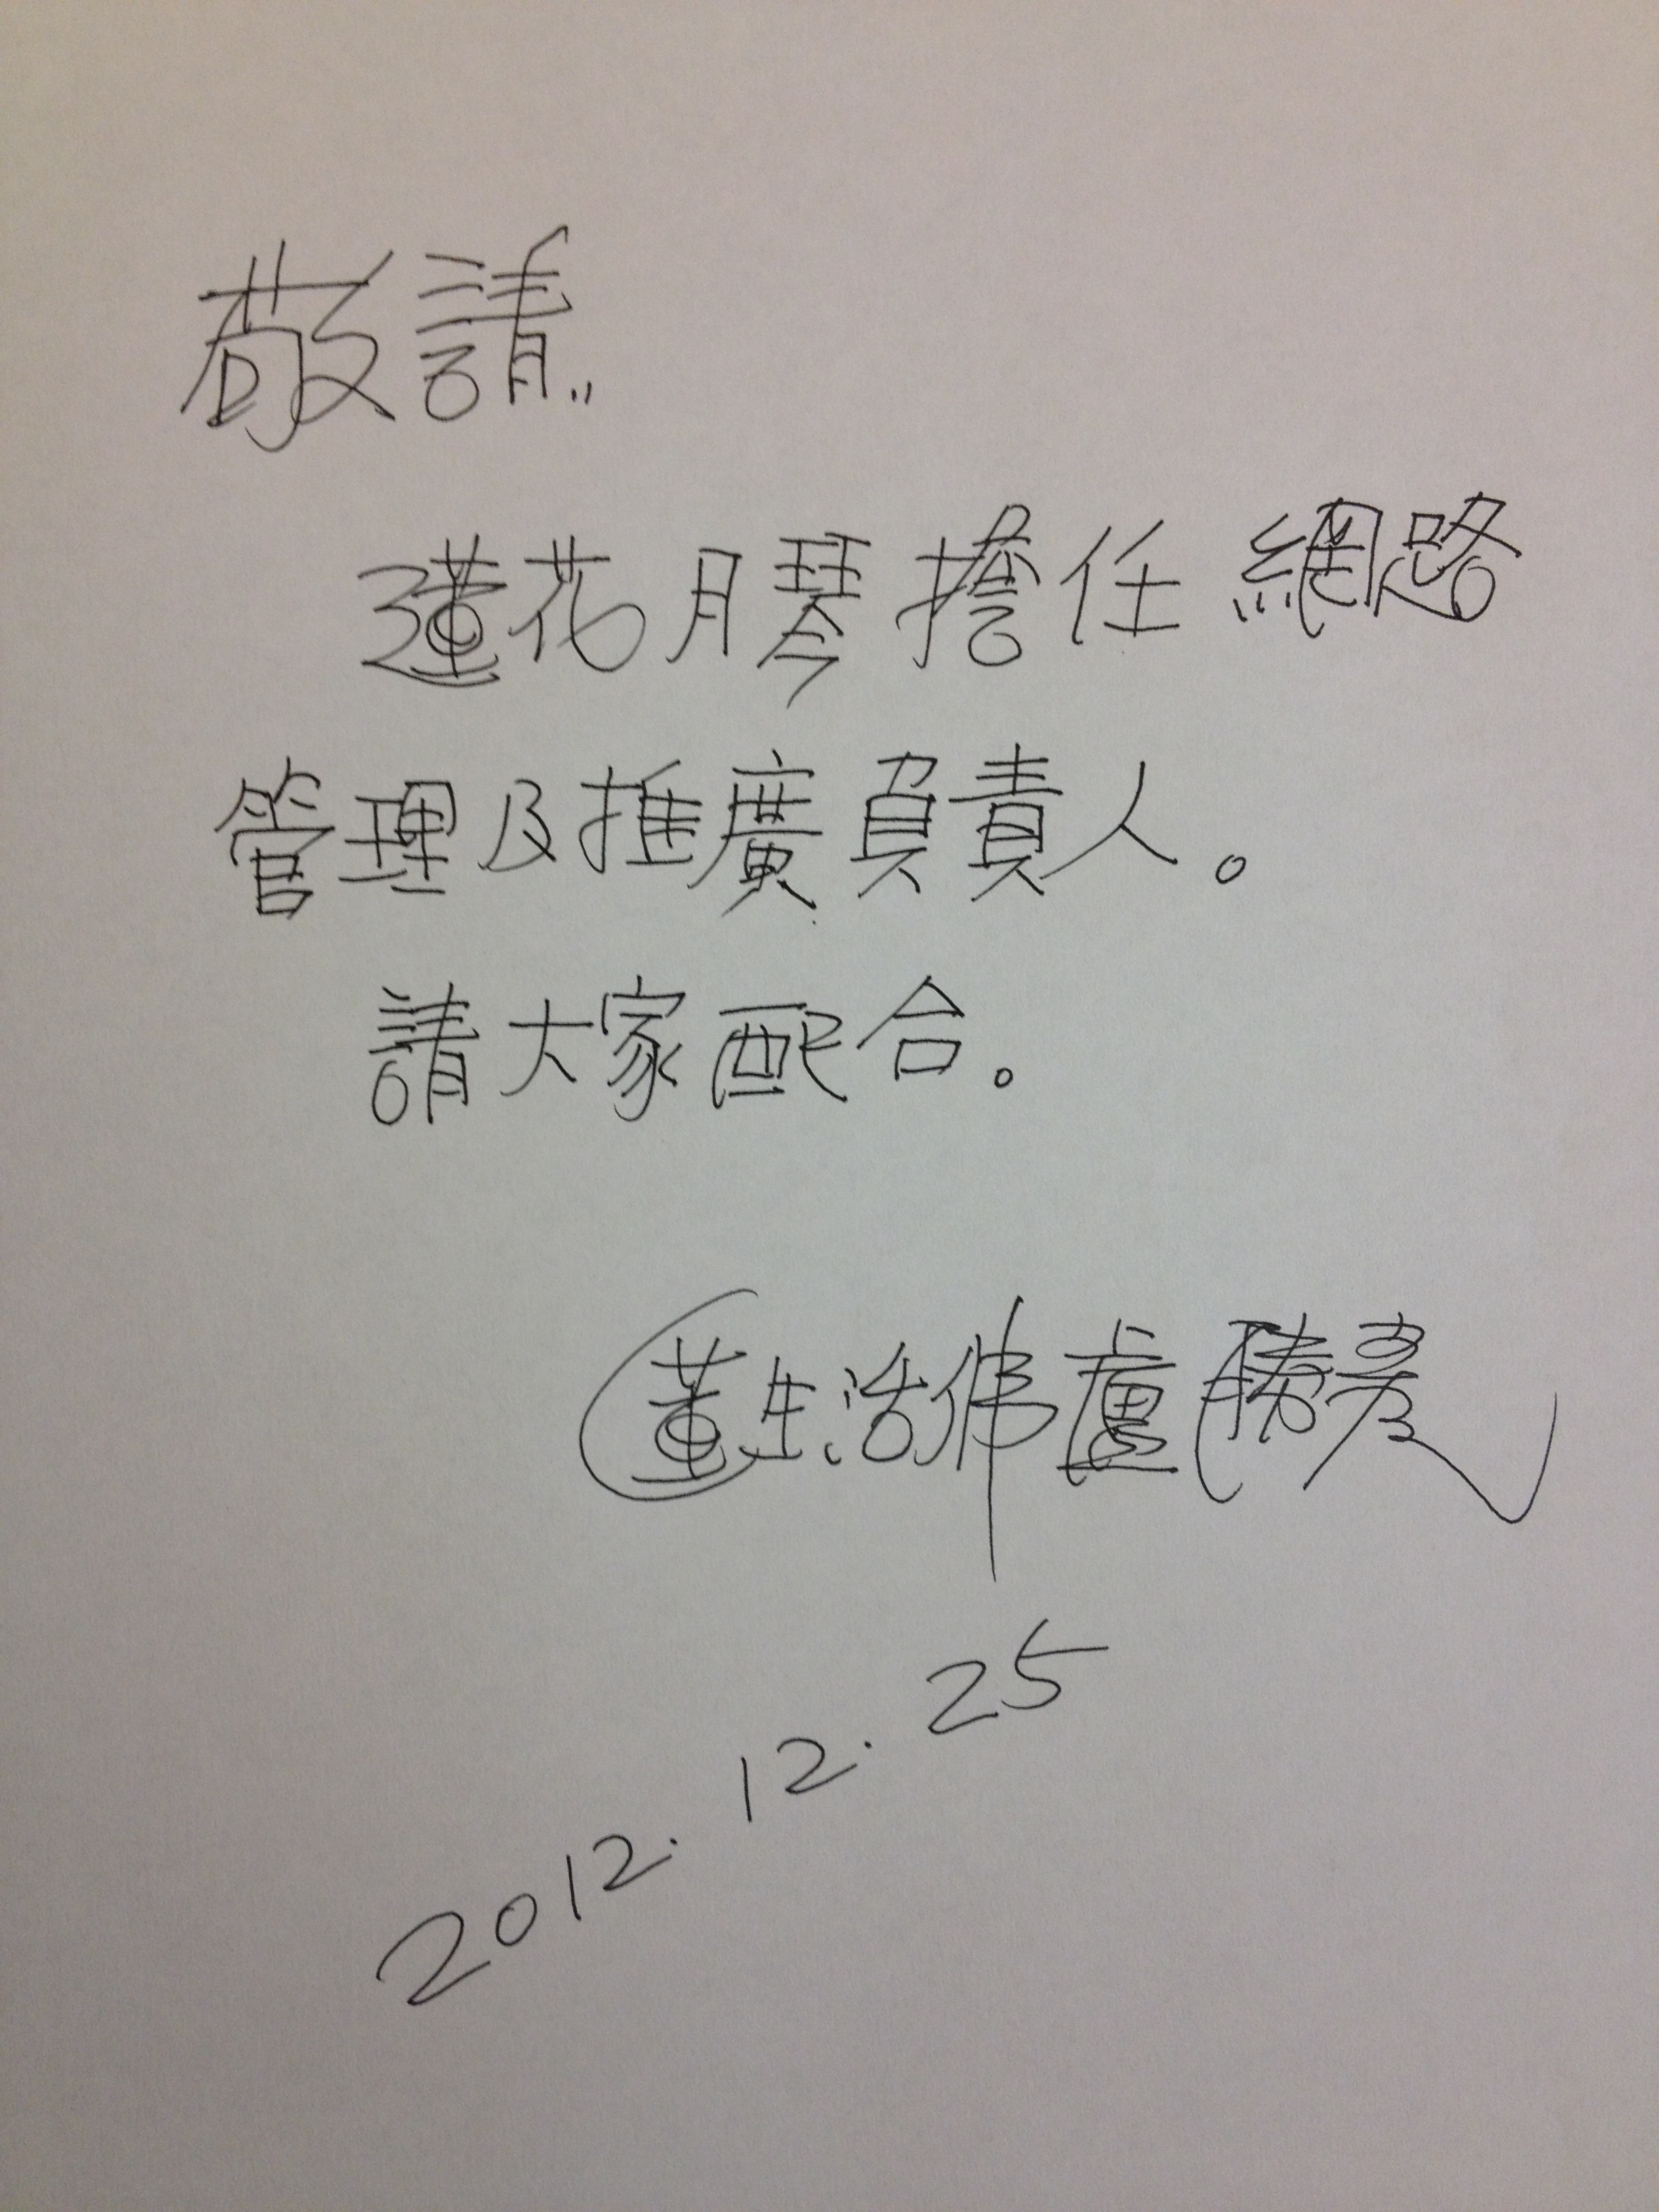 敬請：
蓮花月琴擔任網路
管理及推廣負責人。
請大家配合。
蓮生活佛盧勝彥
2012.12.25